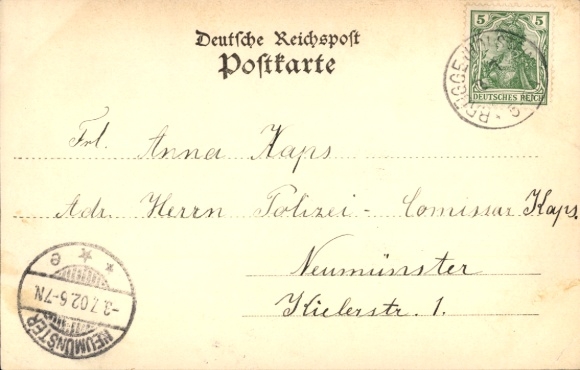 Deutsche Reichspost
Postkarte
5 5
DEUTSCHES REICH
Frl. Anna Kaps
Adr. Herrn Polizei - Comissar Kaps.
Neumünster
Kielerstr. 1.
* * e
-3.7.02.6-7N.
NEUMÜNSTER